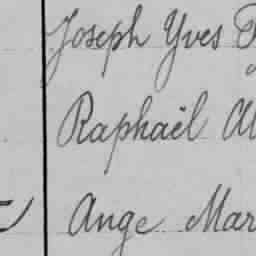 Joseph Yves
Raphaël Al
Ange Mar